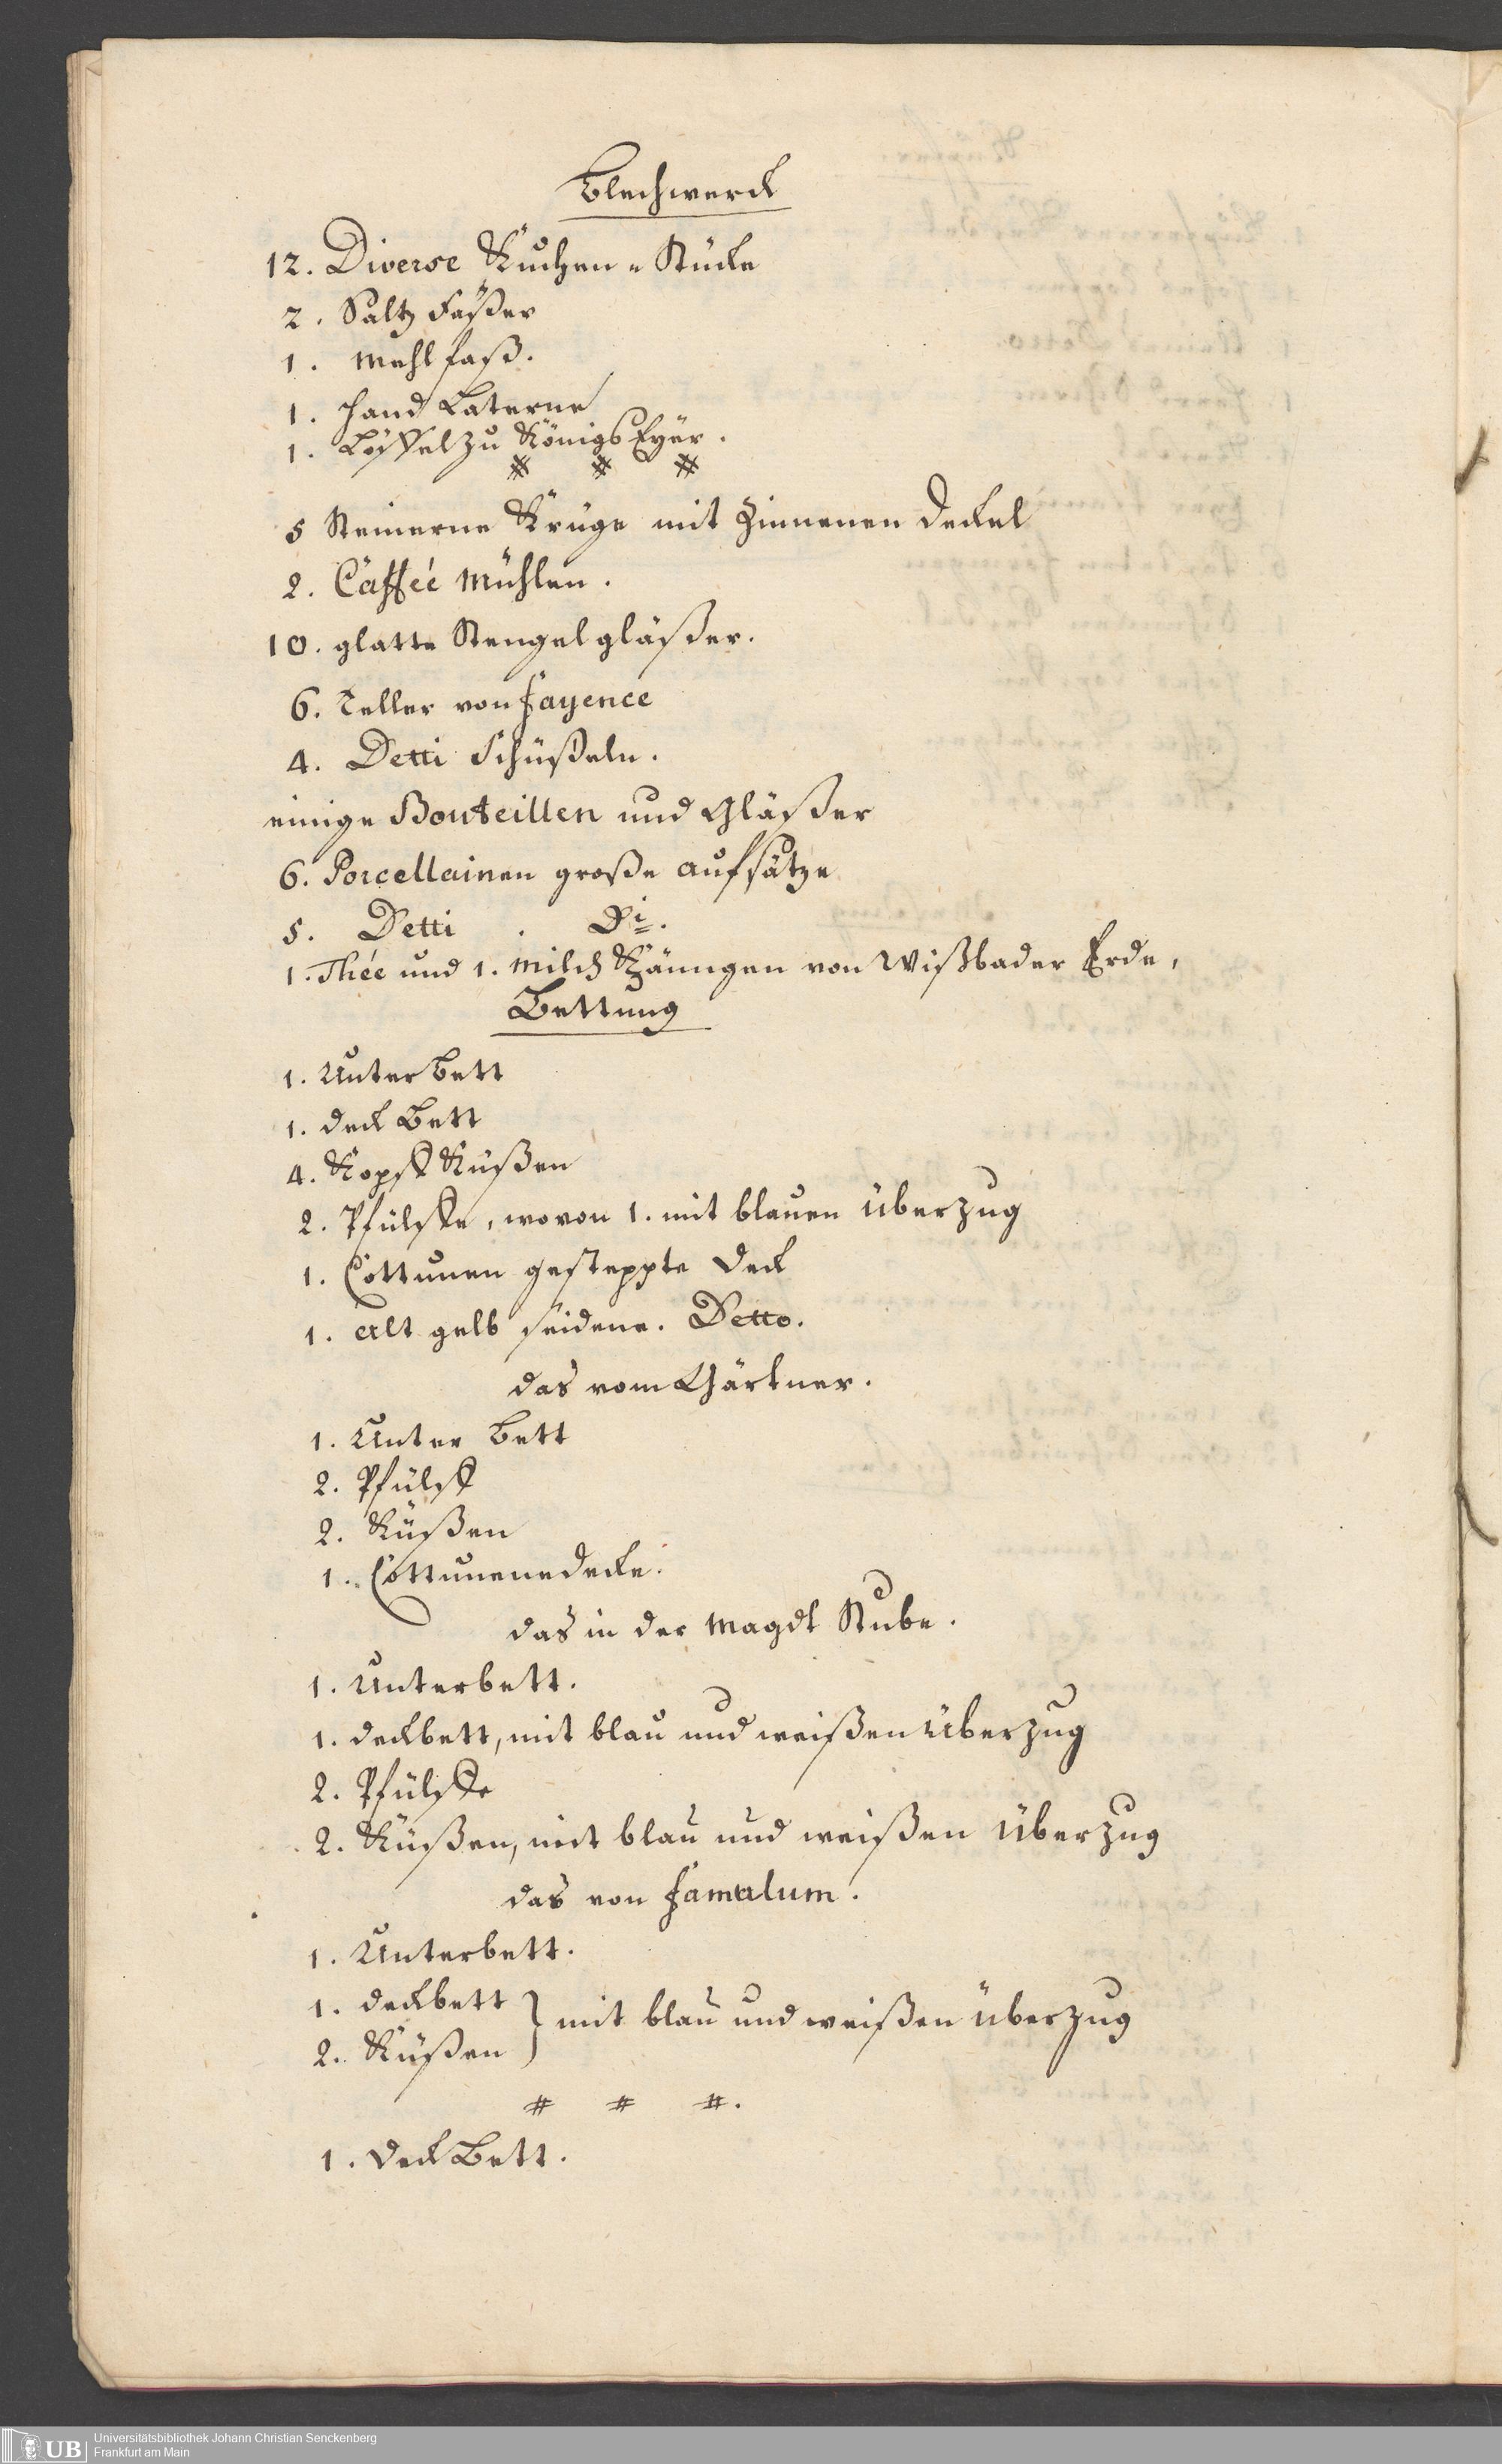 Blechwerck
12. Diverse Kuchen-Stücke
2. Saltz Fäßer
1. Mehl faß.
1. Hand Laterne
1. Löffel zu Königs Eyer.
# # #
5 Steinerne Krüge mit Zinnenen Deckel
2. Caffée Mühlen.
10. glatte Stengelgläßer.
6. Teller von fayence
4. Detti Schüßeln.
einige Bouteillen und Gläßer
6. Porcellainen große Aufsätze
5. Detti . Di.
1. Thée und 1. Milch Känngen von Wißbader Erde,
Bettung
1. Unter Bett
1. Deck Bett
4. Kopff Küßen
2. Pfülffe, wovon 1. mit blauen Überzug
1. Cottunen gesteppte Deck
1. Alt gelb seidene. Detto.
das vom Gärtner.
1. Unter Bett
2. Pfülff
2. Küßen
1. Cottunene Decke.
das in der Magdt Stube.
1. Unterbett.
1. Deckbett, mit blau und weißen Überzug
2. Pfülffe
2. Küßen, mit blau und weißen Überzug
das von famulum.
1. Unterbett.
1. Deckbett } mit blau und weißen Überzug
2. Küßen
# # #.
1. Deck Bett.
UB Universitätsbibliothek Johann Christian Senckenberg
Frankfurt am Main